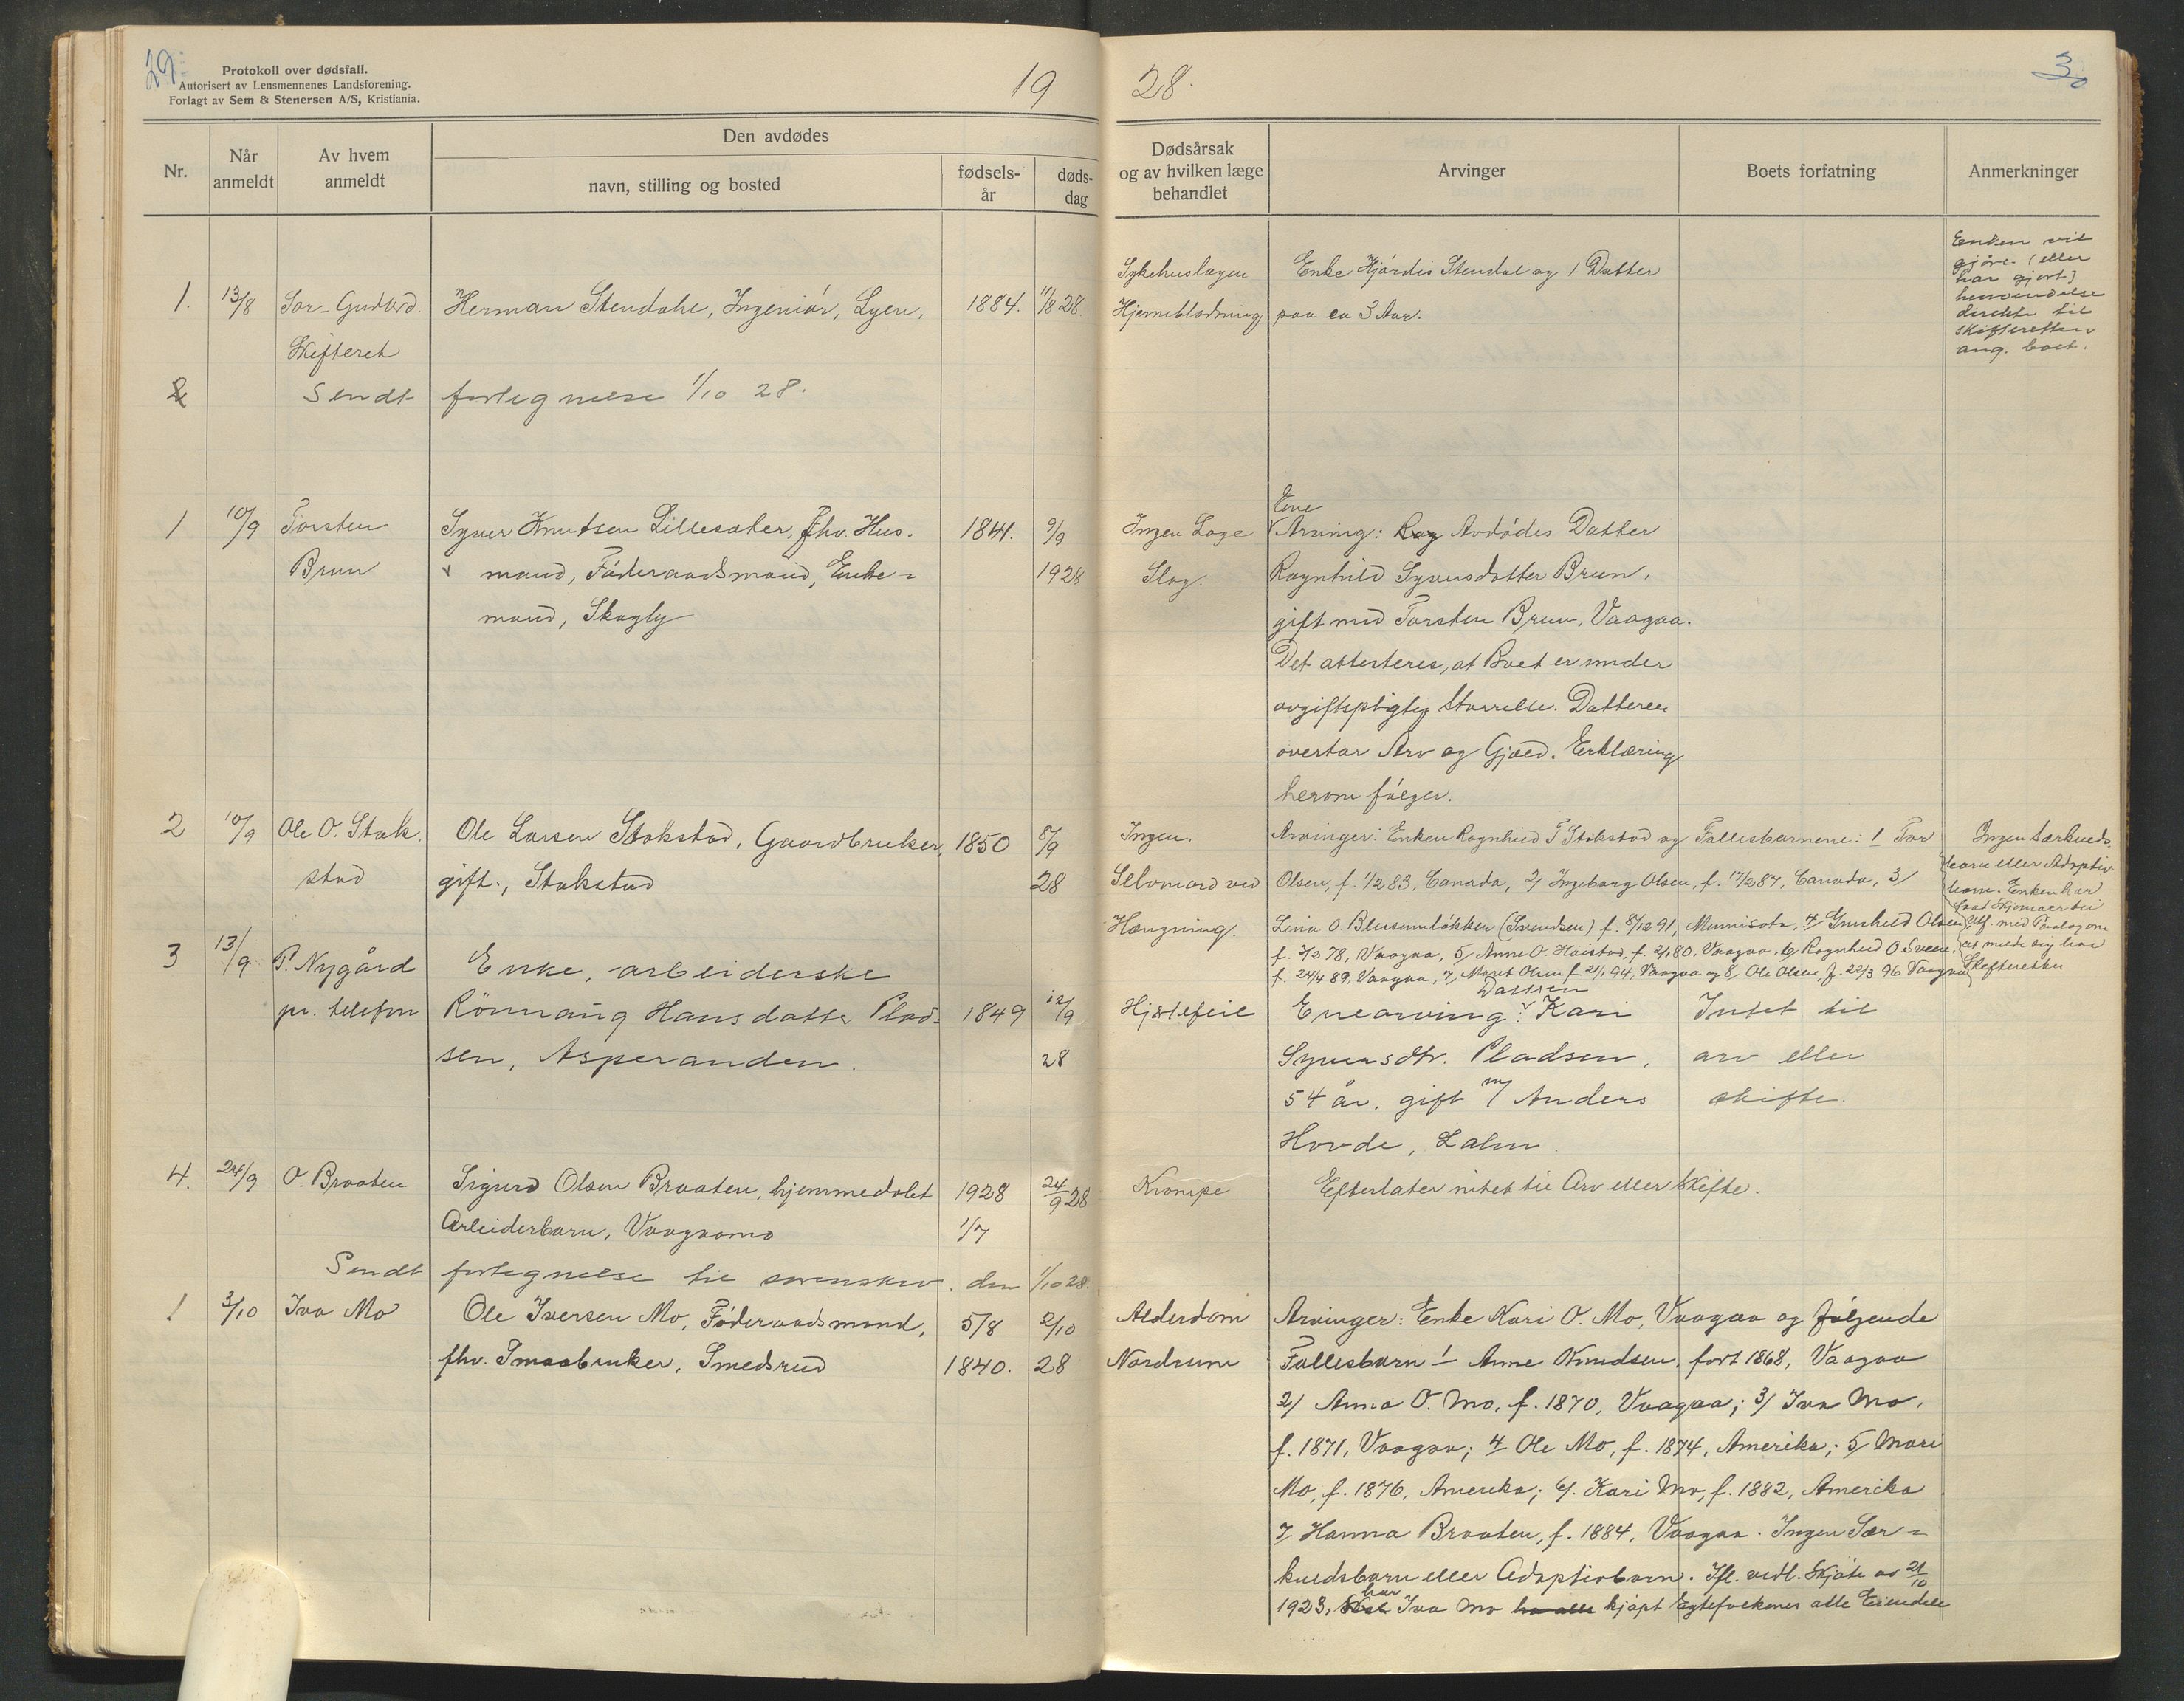 29
Protokoll over dødsfall.
Autorisert av Lensmennenes Landsforening.
Forlagt av Sem & Stenersen A/S, Kristiania.
19
Nr.
Når anmeldt
Av hvem anmeldt
Den avdødes
navn, stilling og bosted
fødsels-år
døds-dag
1. 13/8 Sør-Gudbrd. Herman Stendahl, Ingeniør, 1884. 11/8 28.
Skifteret
2 Sendt fortegnelse 1/10 28.
1 10/9 Torsten Syver Knutsen Lillesæter, fhv. Hus- 1841. 9/9
Brun mand, Föderaadsmand, Enke- 1928
mand, Skogly
2 10/9 Ole O. Stok- Ole Larsen Stokstad, Gaardbruker, 1850 8/9
stad gift., Stokstad 28
3 13/9 P. Nygård Enke, arbeiderske
pr. telefon Rönnaug Hansdatter Plad- 1849 12/9
sen, Asperanden. 28
4. 24/9 O. Braaten Sigurd Olsen Braaten, hjemmedøbt 1928 24/9 28
Arbeiderbarn, Vaagaamo 1/7
Sendt fortegnelse til sorenskriv. den 1/10 28.
1 3/10 Iva Mo Ole Iversen Mo, Föderaadsmand, 5/8 2/10
fhv. Smaabruker, Smedsrud 1840. 28
28.
30
Dødsårsak og av hvilken læge behandlet
Arvinger
Boets forfatning
Anmerkninger
Sykehuslægen Enke Hjördis Stendal og 1 Datter
Hjerneblødning paa ca 3 Aar.
Enken vil
gjøre (eller
har gjort)
henvendelse
direkte til
skifteretten
ang. boet.
Ene
Ingen Læge Arving: Rag Avdödes Datter
Slag. Ragnhild Syversdatter Brun,
gift med Torsten Brun, Vaagaa.
Det attesteres, at Boet er under
avgiftspligtig Størrelse. Datteren
overtar Arv og Gjæld. Erklæring
herom fölger.
Ingen. Arvinger: Enken Ragnhild T Stokstad og Fællesbarnene: 1 Tor
Selvmord ved Olsen, f. 1/2 83, Canada, 2/ Ingeborg Olsen, f. 17/2 87, Canada, 3/
Hængning. Lina O. Blessumløkken (Svendsen) f. 8/12 91, Minnisota, 4 Gunhild Olsen
f. 3/2 78, Vaagaa, 5/ Anne O. Haistad, f. 2/1 80, Vaagaa. 6/ Ragnhild O Sveen.
f. 24/4 89, Vaagaa, 7, Marit Olsen f. 21/1 94, Vaagaa og 8, Ole Olsen, f. 22/3 96 Vaagaa
Ingen Særkuds-
barn eller Adoptiv
barn. Enken har
faat Skjemaer til
Utf. med Paalæg om
at melde sig hos
Skifteretten
Datteren
Hjertefeil Enearving: Kari Intet til
Syversdtr. Pladsen, arv eller
54 år, gift m/ Anders skifte.
Hovde, Lalm.
Krampe Efterlater intet til Arv eller Skifte.
Alderdom Arvinger: Enke Kari O. Mo, Vaagaa og fölgende
Nordrum Fællesbarn 1 Anne Knudsen, født 1868, Vaagaa
2/ Anna O. Mo, f. 1870, Vaagaa; 3/ Iva Mo,
f. 1871, Vaagaa; 4 Ole Mo, f. 1874, Amerika; 5/ Mari
Mo, f. 1876, Amerika; 6/. Kari Mo, f. 1882, Amerika
7 Hanna Braaten, f. 1884, Vaagaa. Ingen Sær-
kuldsbarn eller Adoptivbarn. Ifl. vedl. Skjöte av 21/10
har
1923, Iva Mo har alle kjøpt Egtefolkenes alle Eiendele